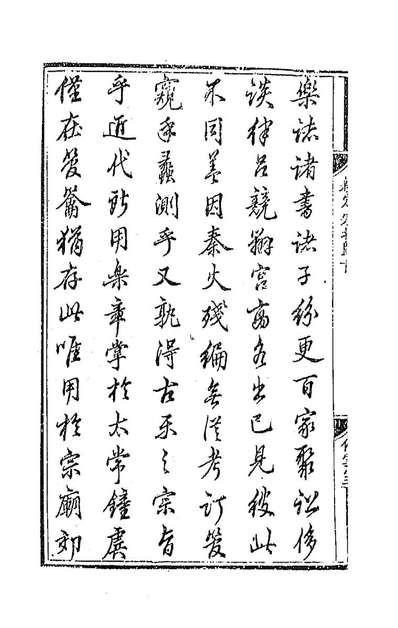 樂誌諸書諸子紛更百家聚訟侈
談律呂競辯宮商各出已見彼此
不同蓋因秦火殘編無從考訂管
窺乎蠡測乎又孰得古乐之宗旨
乎近代所用樂章掌於太常鐘虡
僅在管籥猶存此唯用於宗廟郊